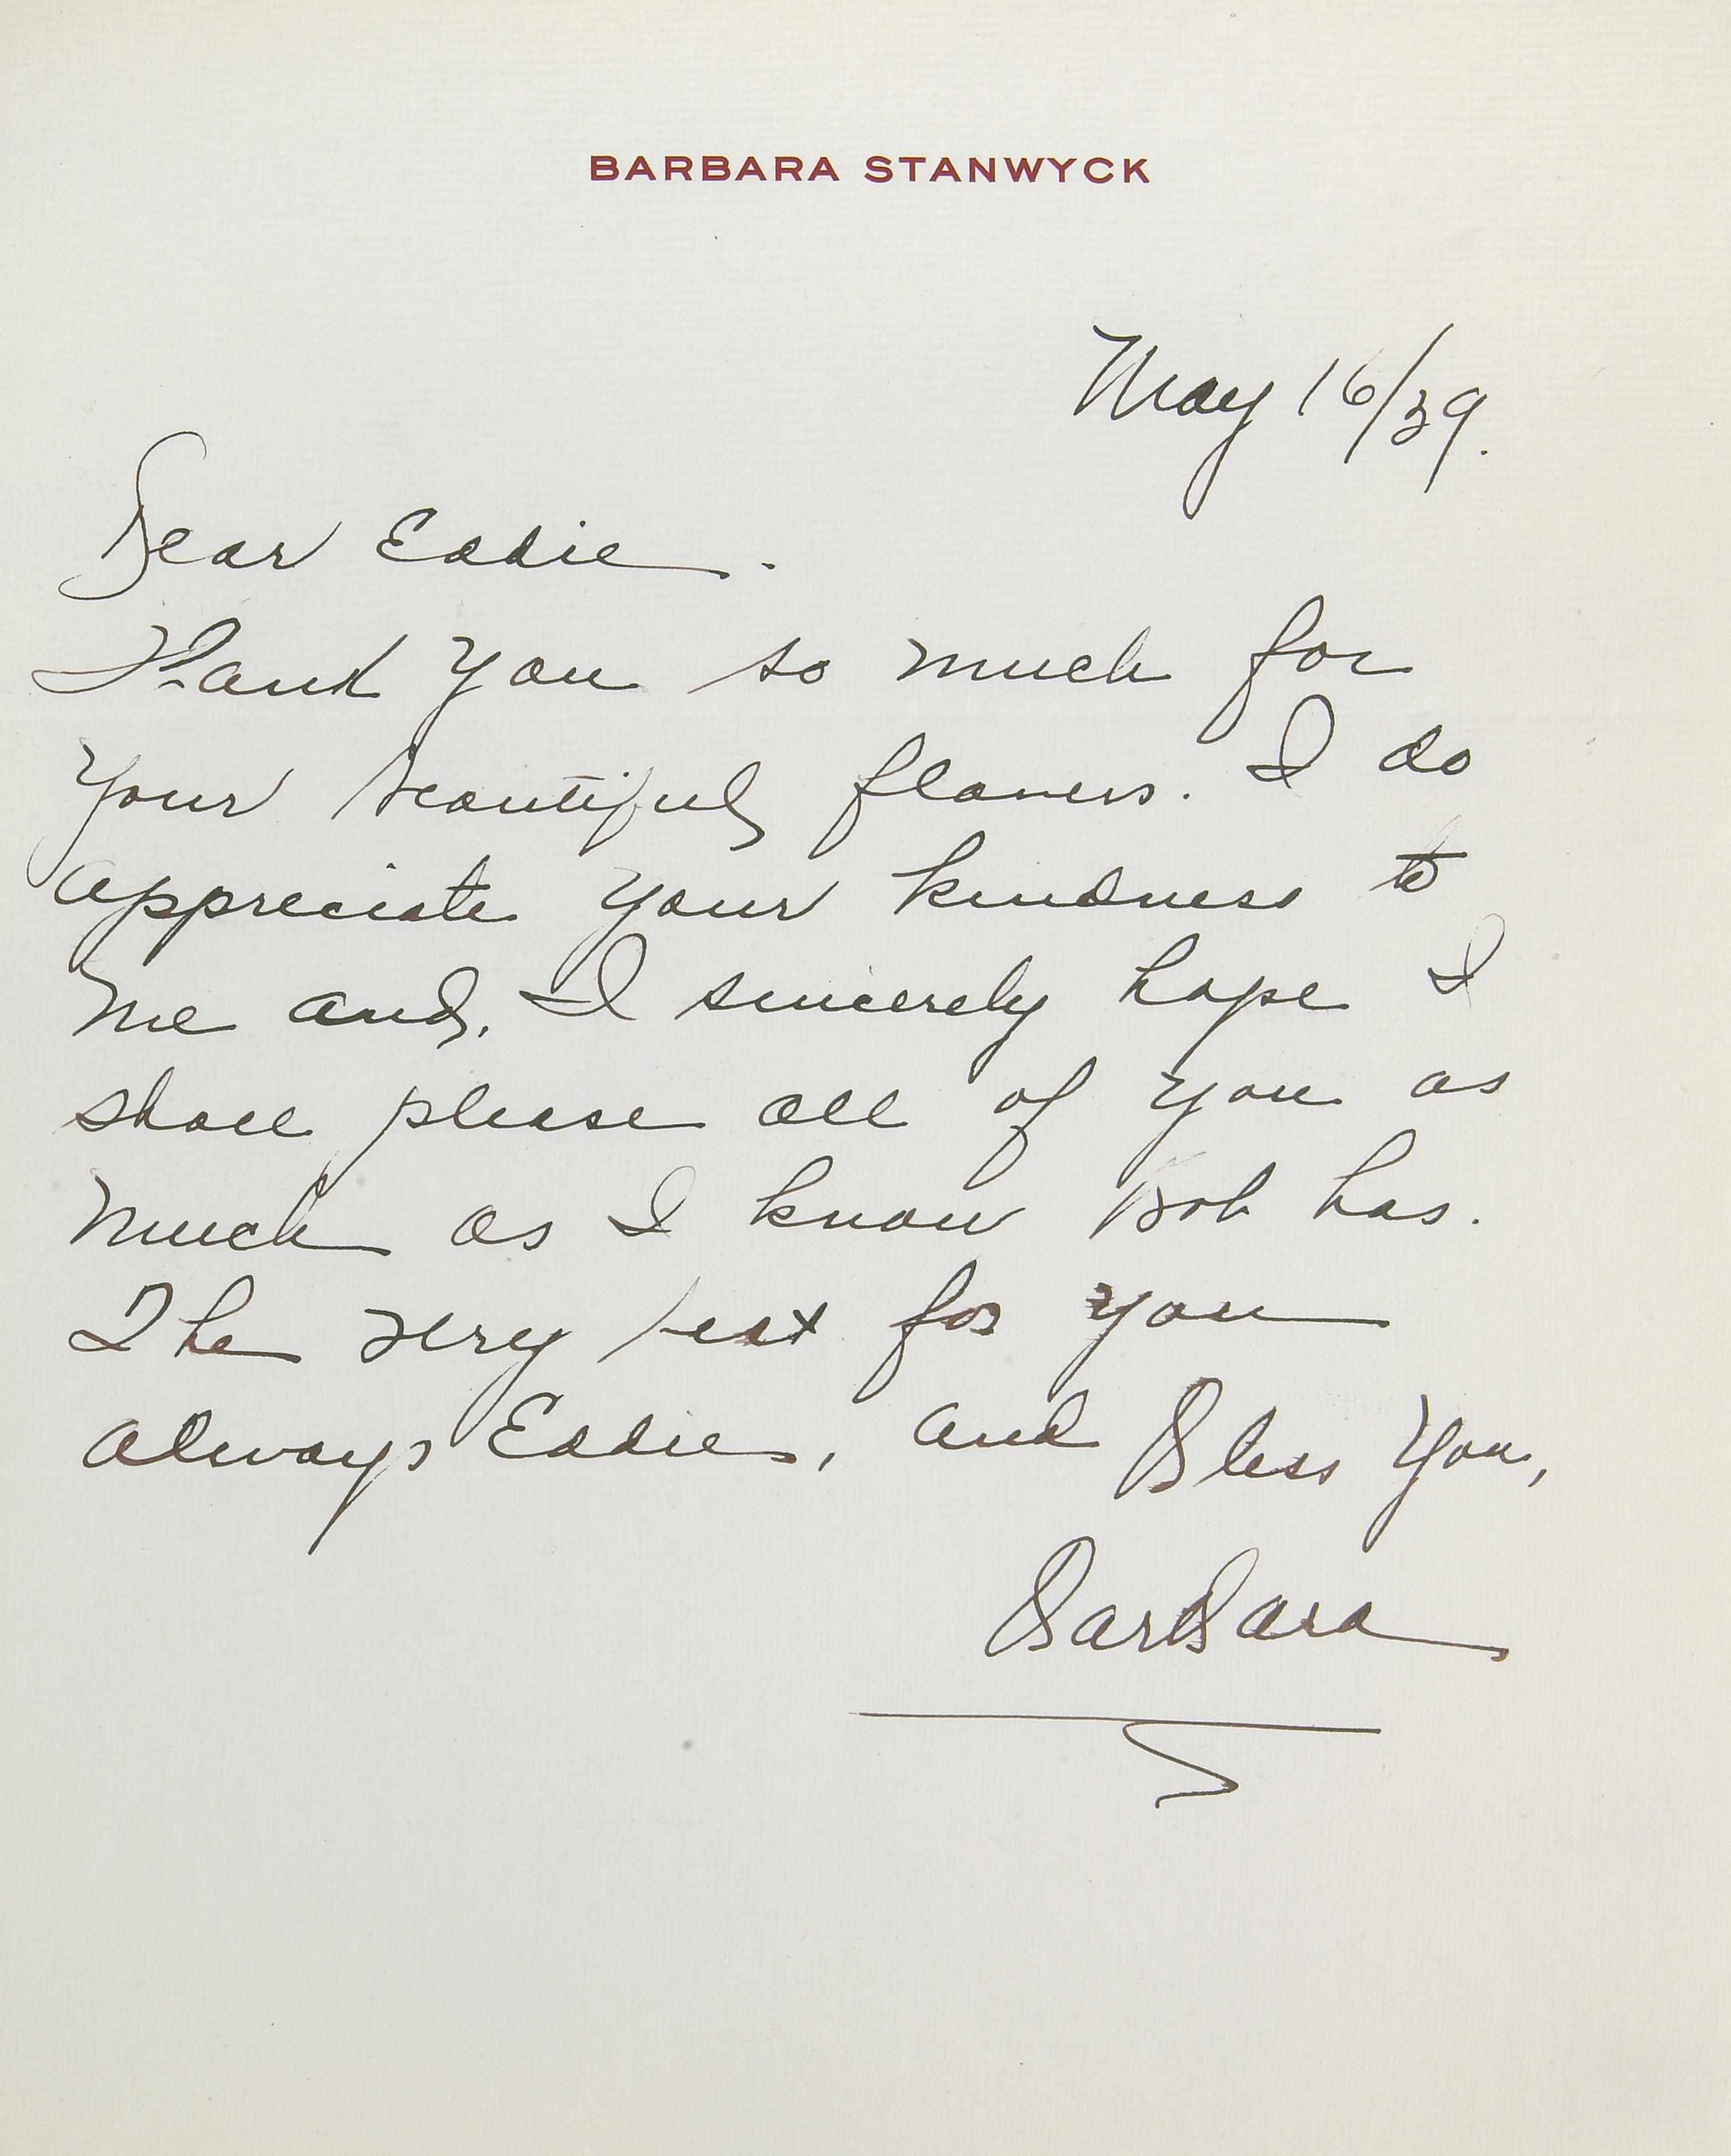 BARBARA STANWYCK
May 16/39.
Dear Eddie.
Thank you so much for
your beautiful flowers. I do
appreciate your kindness to
me and, I sincerely hope I
shall please all of you as
much as I know Bob has.
The very best for you
always Eddie, and Bless You,
Barbara